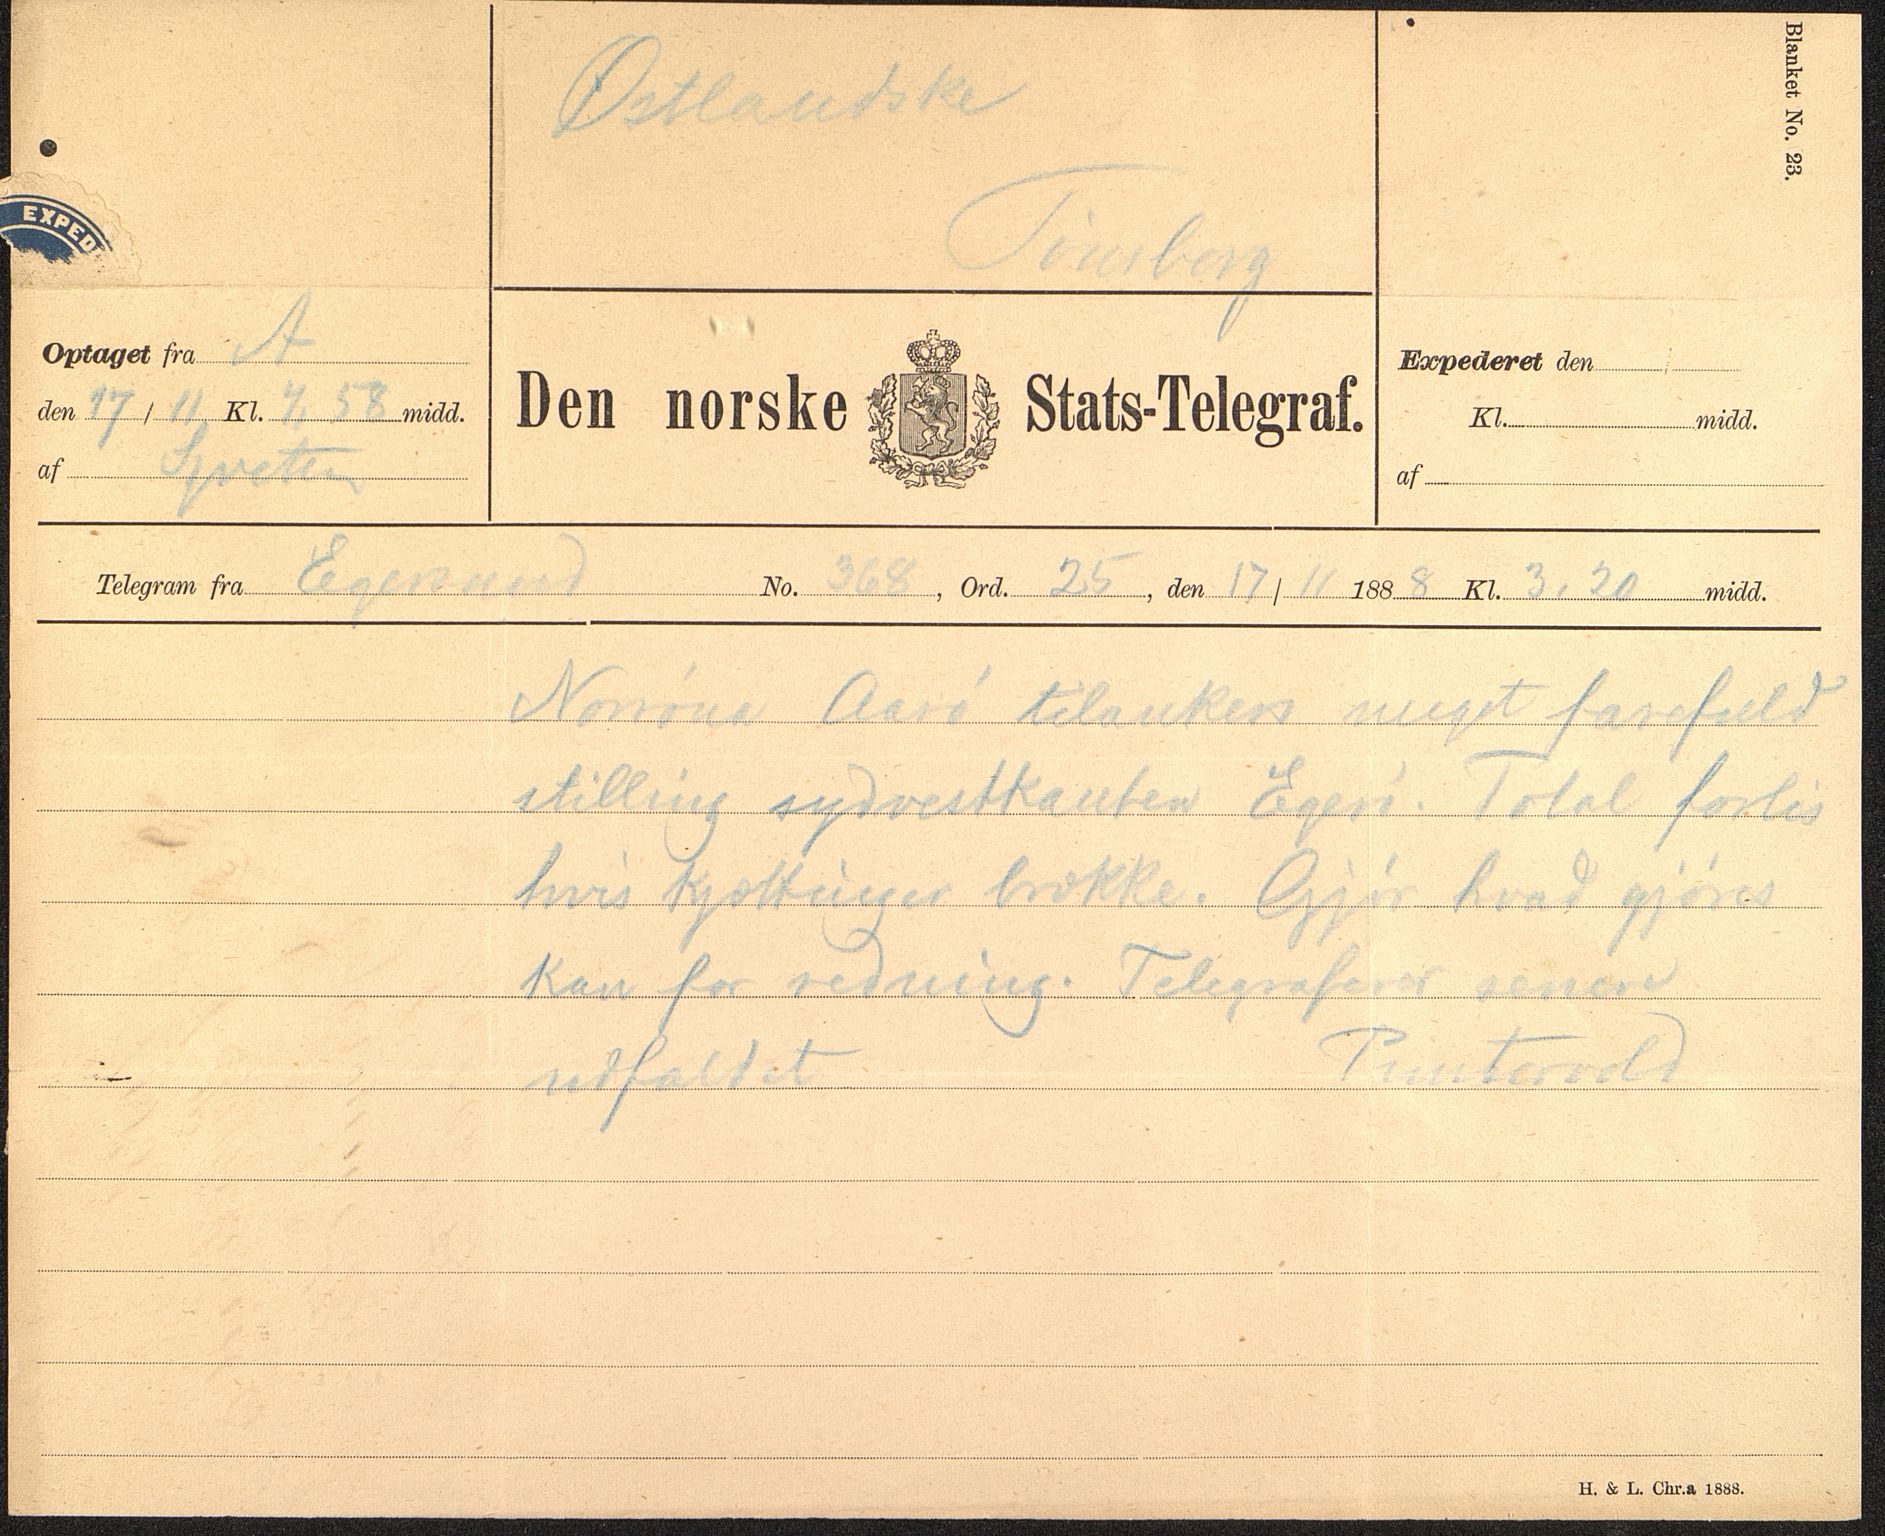 Blanket No. 23.
Østlandske
Tønsberg
EXPED
Optaget fra A
den 17 / 11 Kl. 4, 58 midd.
af
Den norske Stats-Telegraf.
Expederet den /
Kl. midd.
af
Telegram fra Egersund No. 368, Ord. 25, den 17 / 11 1888 Kl. 3.20 midd.
Norröna Aarö tilankers meget farefuld
stilling sydvestkanten Egerö. Total forlis
hvis kjættinger brække. Gjör hvad gjöres
kan for redning. Telegraferer senere
udfaldet Puntervold
H. & L. Chr.a 1888.